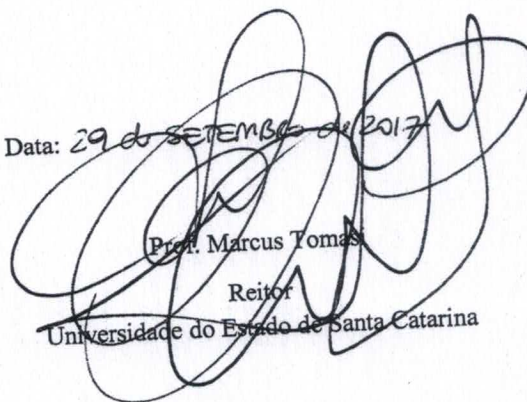 Data: 29 de SETEMBRO de 2017
Prof. Marcus Tomasi
Reitor
Universidade do Estado de Santa Catarina